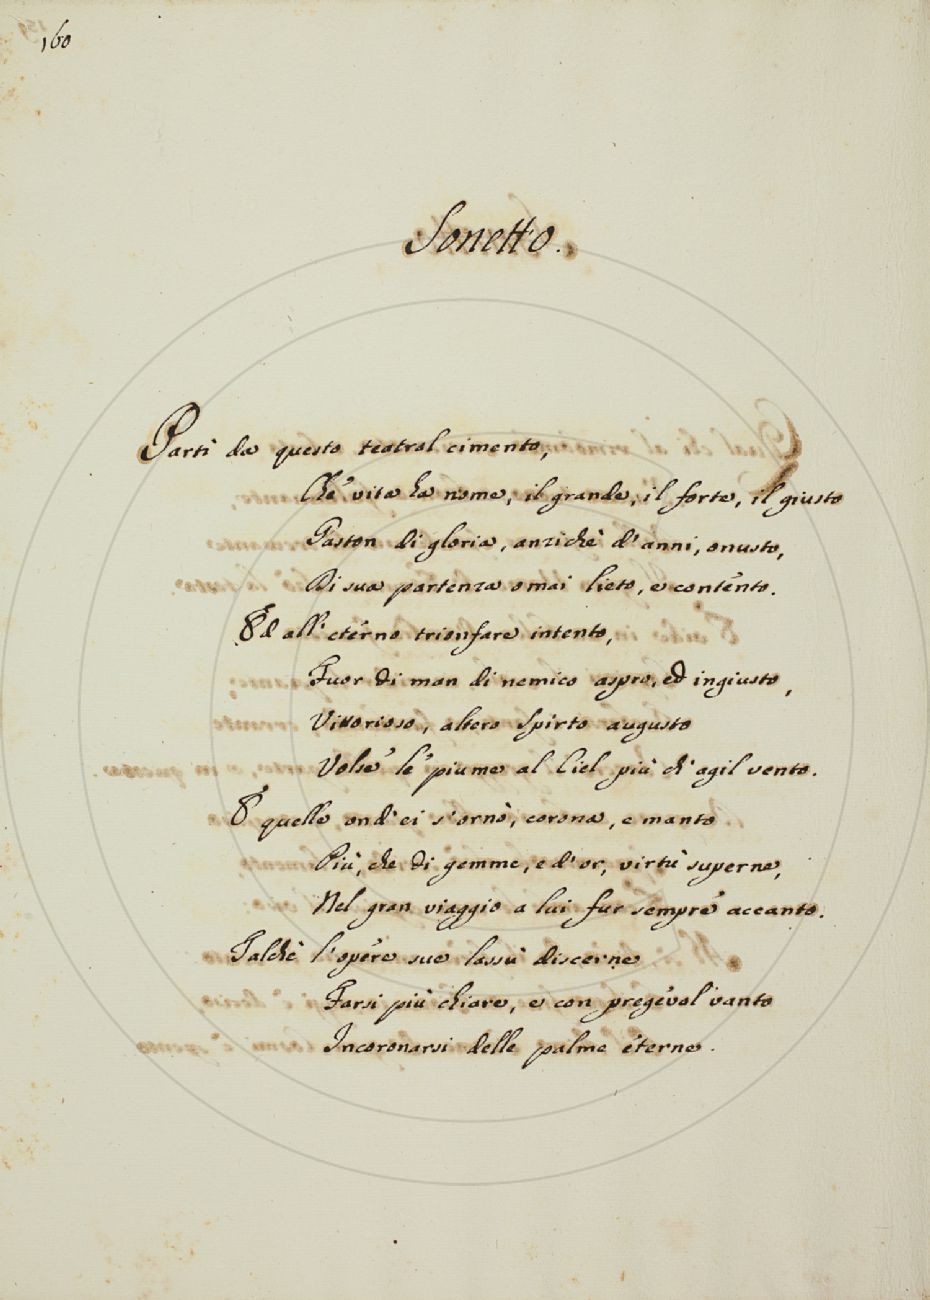 160
Sonetto.
Partì da questo teatral cimento,
Che vita ha nome, il grande, il forte, il giusto
Gaston di gloria, anzichè d'anni, onusto,
Di sua partenza omai lieto, e contento.
Ed all'eterno trionfare intento,
Fuor di man di nemico aspro, ed ingiusto,
Vittorioso, altero spirto augusto
Volse le piume al Ciel più ch'agil vento.
E quelle ond'ei s'ornò, corona, e manto
Più, che di gemme, e d'or, virtù superne,
Nel gran viaggio a lui fur sempre accanto.
Talchè l'opere sue lassù discerne
Farsi più chiare, e con pregevol vanto
Incoronarsi delle palme eterne.